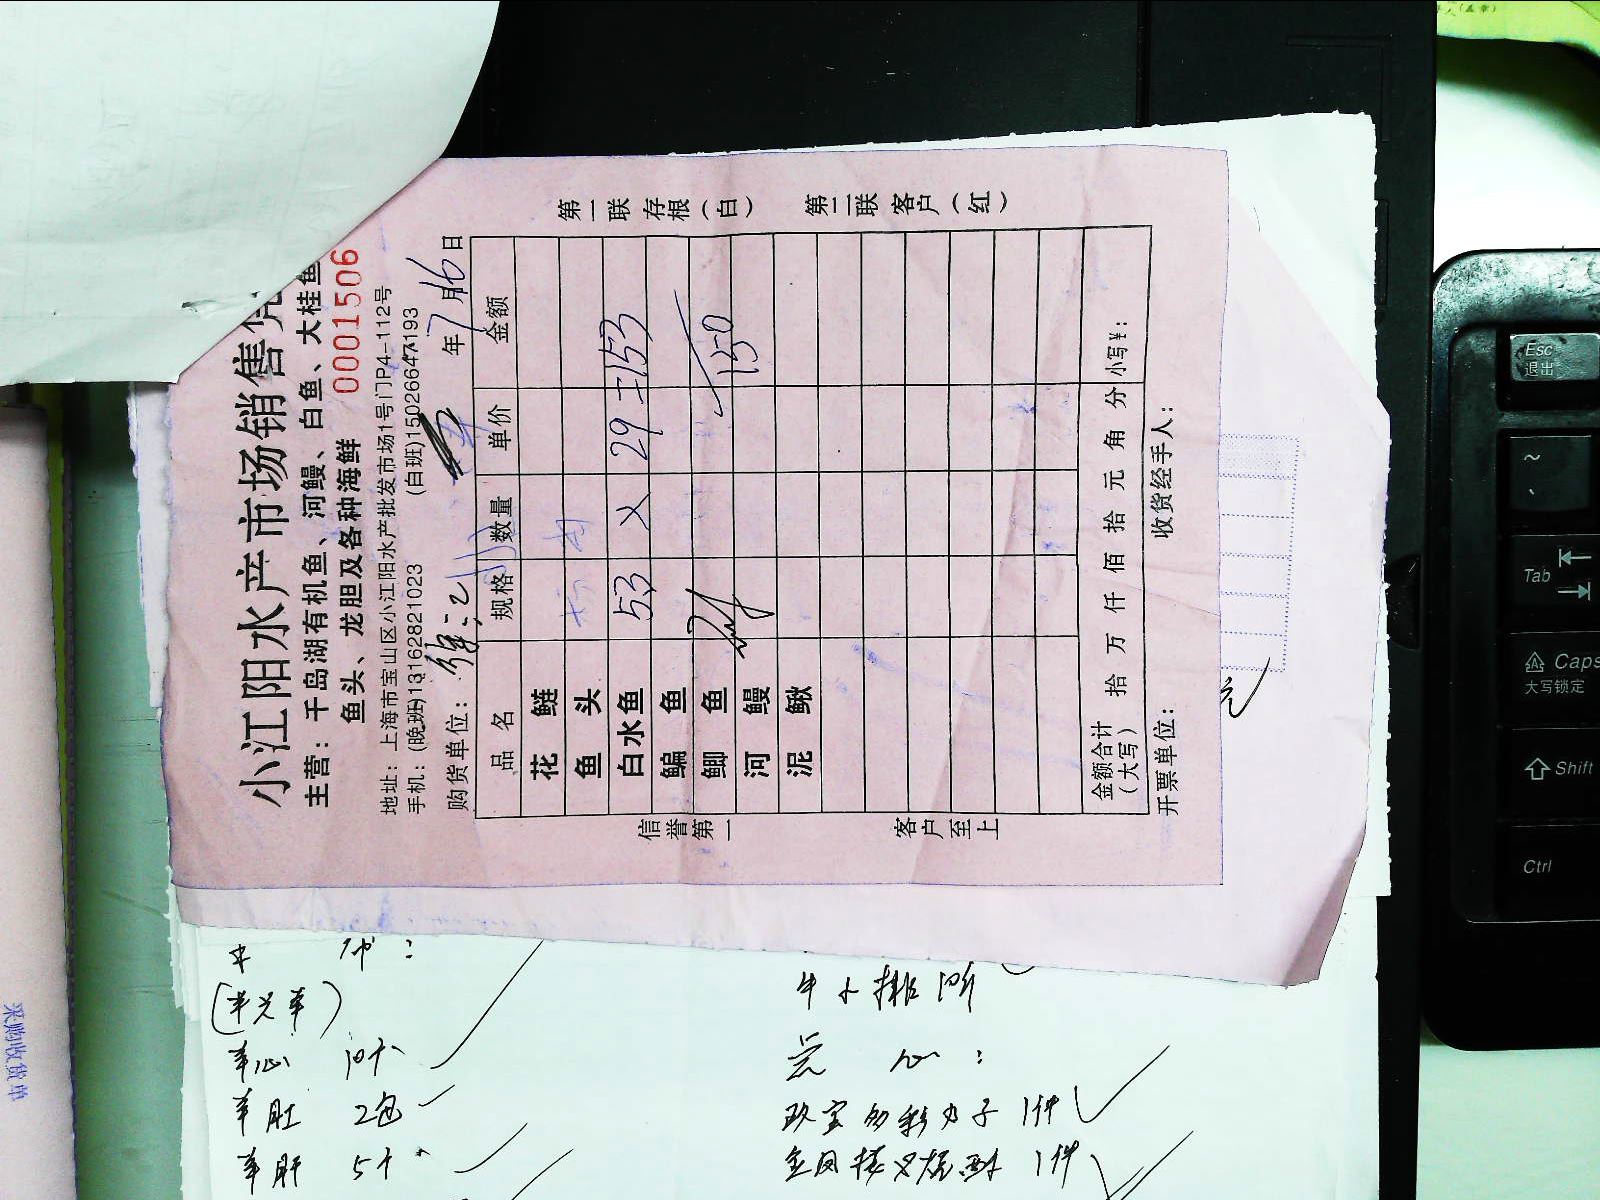 小江阳水产市场销售凭
主营：千岛湖有机鱼、河鳗、白鱼、大桂鱼
鱼头、龙胆及各种海鲜
0001506
地址：上海市宝山区小江阳水产批发市场1号门P4-112号
手机：(晚班)13162821023 (白班)15026647193
购货单位： 年7月16日
品名 规格 数量 单价 金额
花鲢
鱼头
白水鱼 53 × 29 =153
鳊鱼
鲫鱼 150
河鳗
泥鳅
金额合计(大写) 拾 万 仟 佰 拾 元 角 分 小写￥：
开票单位： 收货经手人：
第一联 存根(白) 第二联 客户(红)
信誉第一 客户至上
羊心 10个
羊肚 2包
羊肝 5个
牛小排
1件
1件
采购收货单
Esc
退出
~
Tab
Caps
大写锁定
Shift
Ctrl